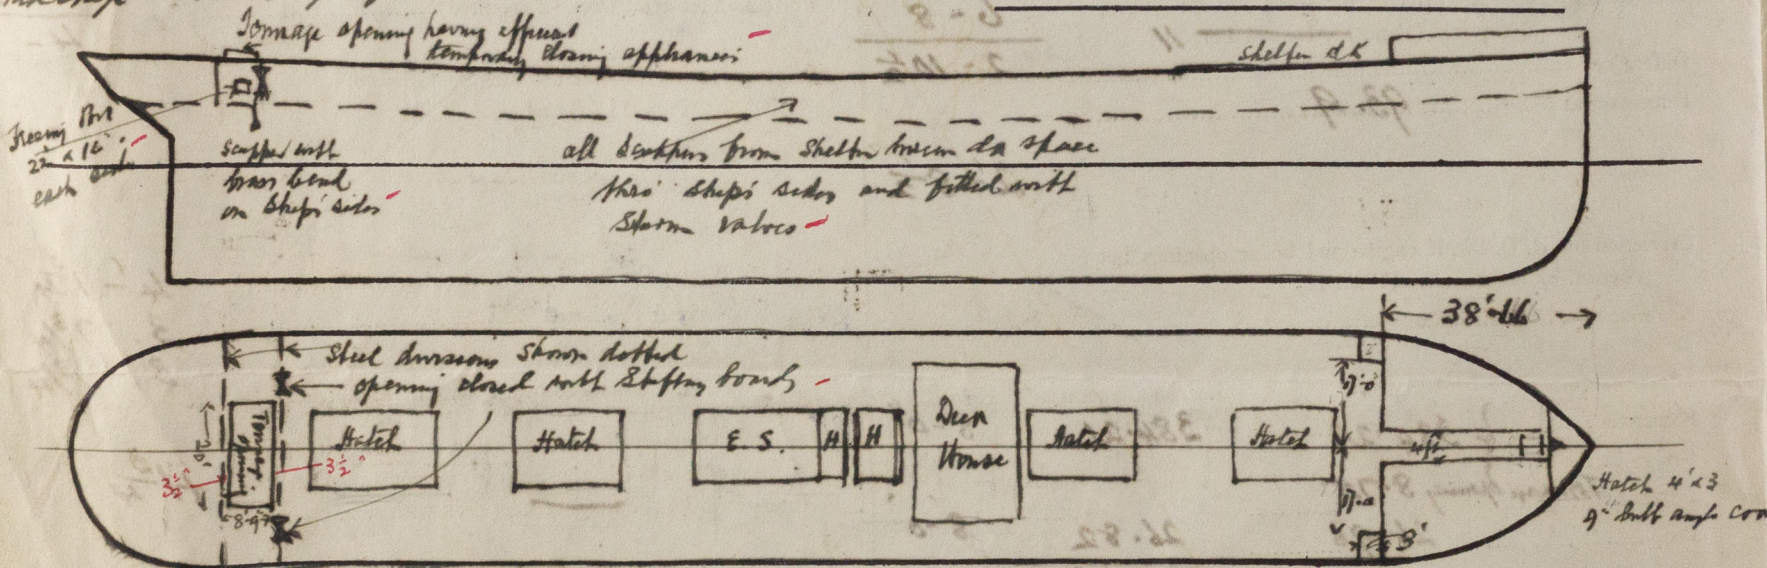 Tonnage opening having efficient
temporary closing appliances
Shelter dk
Freeing Port
each side
Scupper with
brass bend
on Ship's sides
all Scuppers from Shelter tween dk space
thro' Ship's sides and fitted with
Storm Valves
38'·66
Steel divisions shown dotted
opening closed with Shifting boards
Tonnage
opening
20'
3½"
3½"
Hatch
Hatch
E. S.
H
H
Deck
House
Hatch
Hatch
3'
Hatch 4' x 3
9" bulb angle